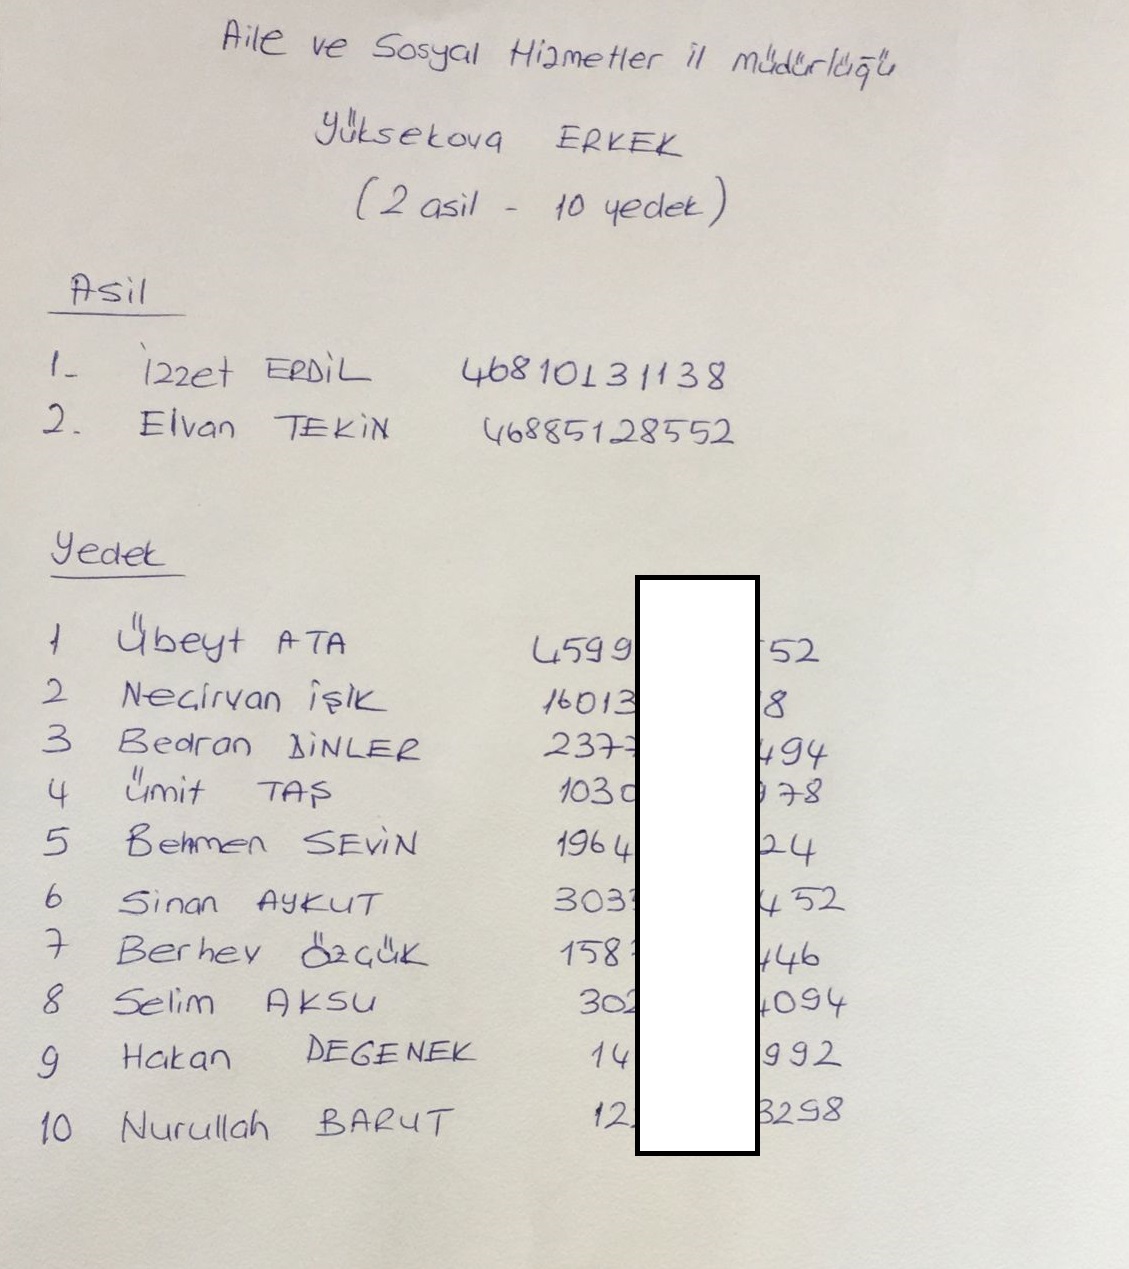 Aile ve Sosyal Hizmetler il müdürlüğü
Yüksekova ERKEK
(2 asil - 10 yedek)
Asil
1- İzzet ERDİL 46810131138
2. Elvan TEKİN 46885128552
Yedek
1 Übeyt ATA 4599 52
2 Neçirvan işik 16013 8
3 Bedran DİNLER 237 494
4 Ümit TAŞ 103 78
5 Behmen SEVİN 1964 24
6 Sinan AYKUT 303 452
7 Berhev ÖZÇÜK 158 46
8 Selim AKSU 30 094
9 Hakan DEGENEK 14 992
10 Nurullah BARUT 12 3298